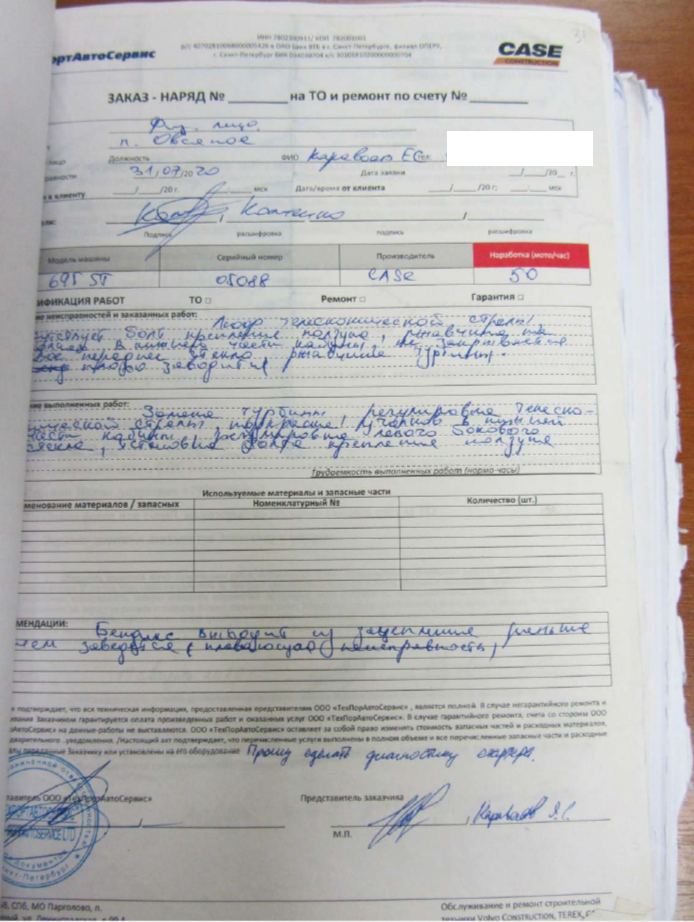 ИНН 7802300911/ КПП 780201001
р/с 40702810068000005426 в ОАО Банк ВТБ в г. Санкт-Петербурге, филиал ОПЕРУ,
г. Санкт-Петербург БИК
ортАвтоСервис
CASE
CONSTRUCTION
ЗАКАЗ - НАРЯД № на ТО и ремонт по счету №
Физ. лицо
п. Овсяное
лицо Должность ФИО Караваев ЕС
равности 31/07/2020 Дата заявки / /20 г.
к клиенту / /20 г. мск Дата/время от клиента / /20 г; мск
Подпись расшифровка подпись расшифровка
Модель машины Серийный номер Производитель Наработка (мото/час)
695 ST 05088 CASE 50
ИФИКАЦИЯ РАБОТ ТО □ Ремонт □ Гарантия □
ние неисправностей и заказанных работ: Люфт телескопической стрелы
болт крепления ползуна, ржавчина на
в нижней части кабины, не закрывается
переднее стекло, ржавчина турбины.
плохо заводится
ние выполненных работ: Замена турбины регулировка телеско-
пической стрелы, в нижней
части кабины регулировка левого бокового
стекла, установка болта крепления ползуна
Трудоемкость выполненных работ (нормо-часы)
Используемые материалы и запасные части
менование материалов / запасных Номенклатурный № Количество (шт.)
МЕНДАЦИИ: Бендикс выходит из зацепления раньше
чем заведется (плавающая неисправность)
м подтверждает, что вся техническая информация, предоставленная представителям ООО «ТехПорАвтоСервис» , является полной. В случае негарантийного ремонта и
вания Заказчиком гарантируется оплата произведенных работ и оказанных услуг ООО «ТехПорАвтоСервис». В случае гарантийного ремонта, счета со стороны ООО
АвтоСервис» на данные работы не выставляются. ООО «ТехПорАвтоСервис» оставляет за собой право изменять стоимость запасных частей и расходных материалов,
дварительного уведомления. /Настоящий акт подтверждает, что перечисленные услуги выполнены в полном объеме и все перечисленные запасные части и расходные
лы переданные Заказчику или установлены на его оборудование Прошу сделать диагностику стартера.
тавитель ООО «ТехПорАвтоСервис» Представитель заказчика
М.П.
AUTOSERVICE LTD
документов
Санкт-Петербург
СПб, МО Парголово, п.
Обслуживание и ремонт строительной
техники Volvo Construction, TEREX,